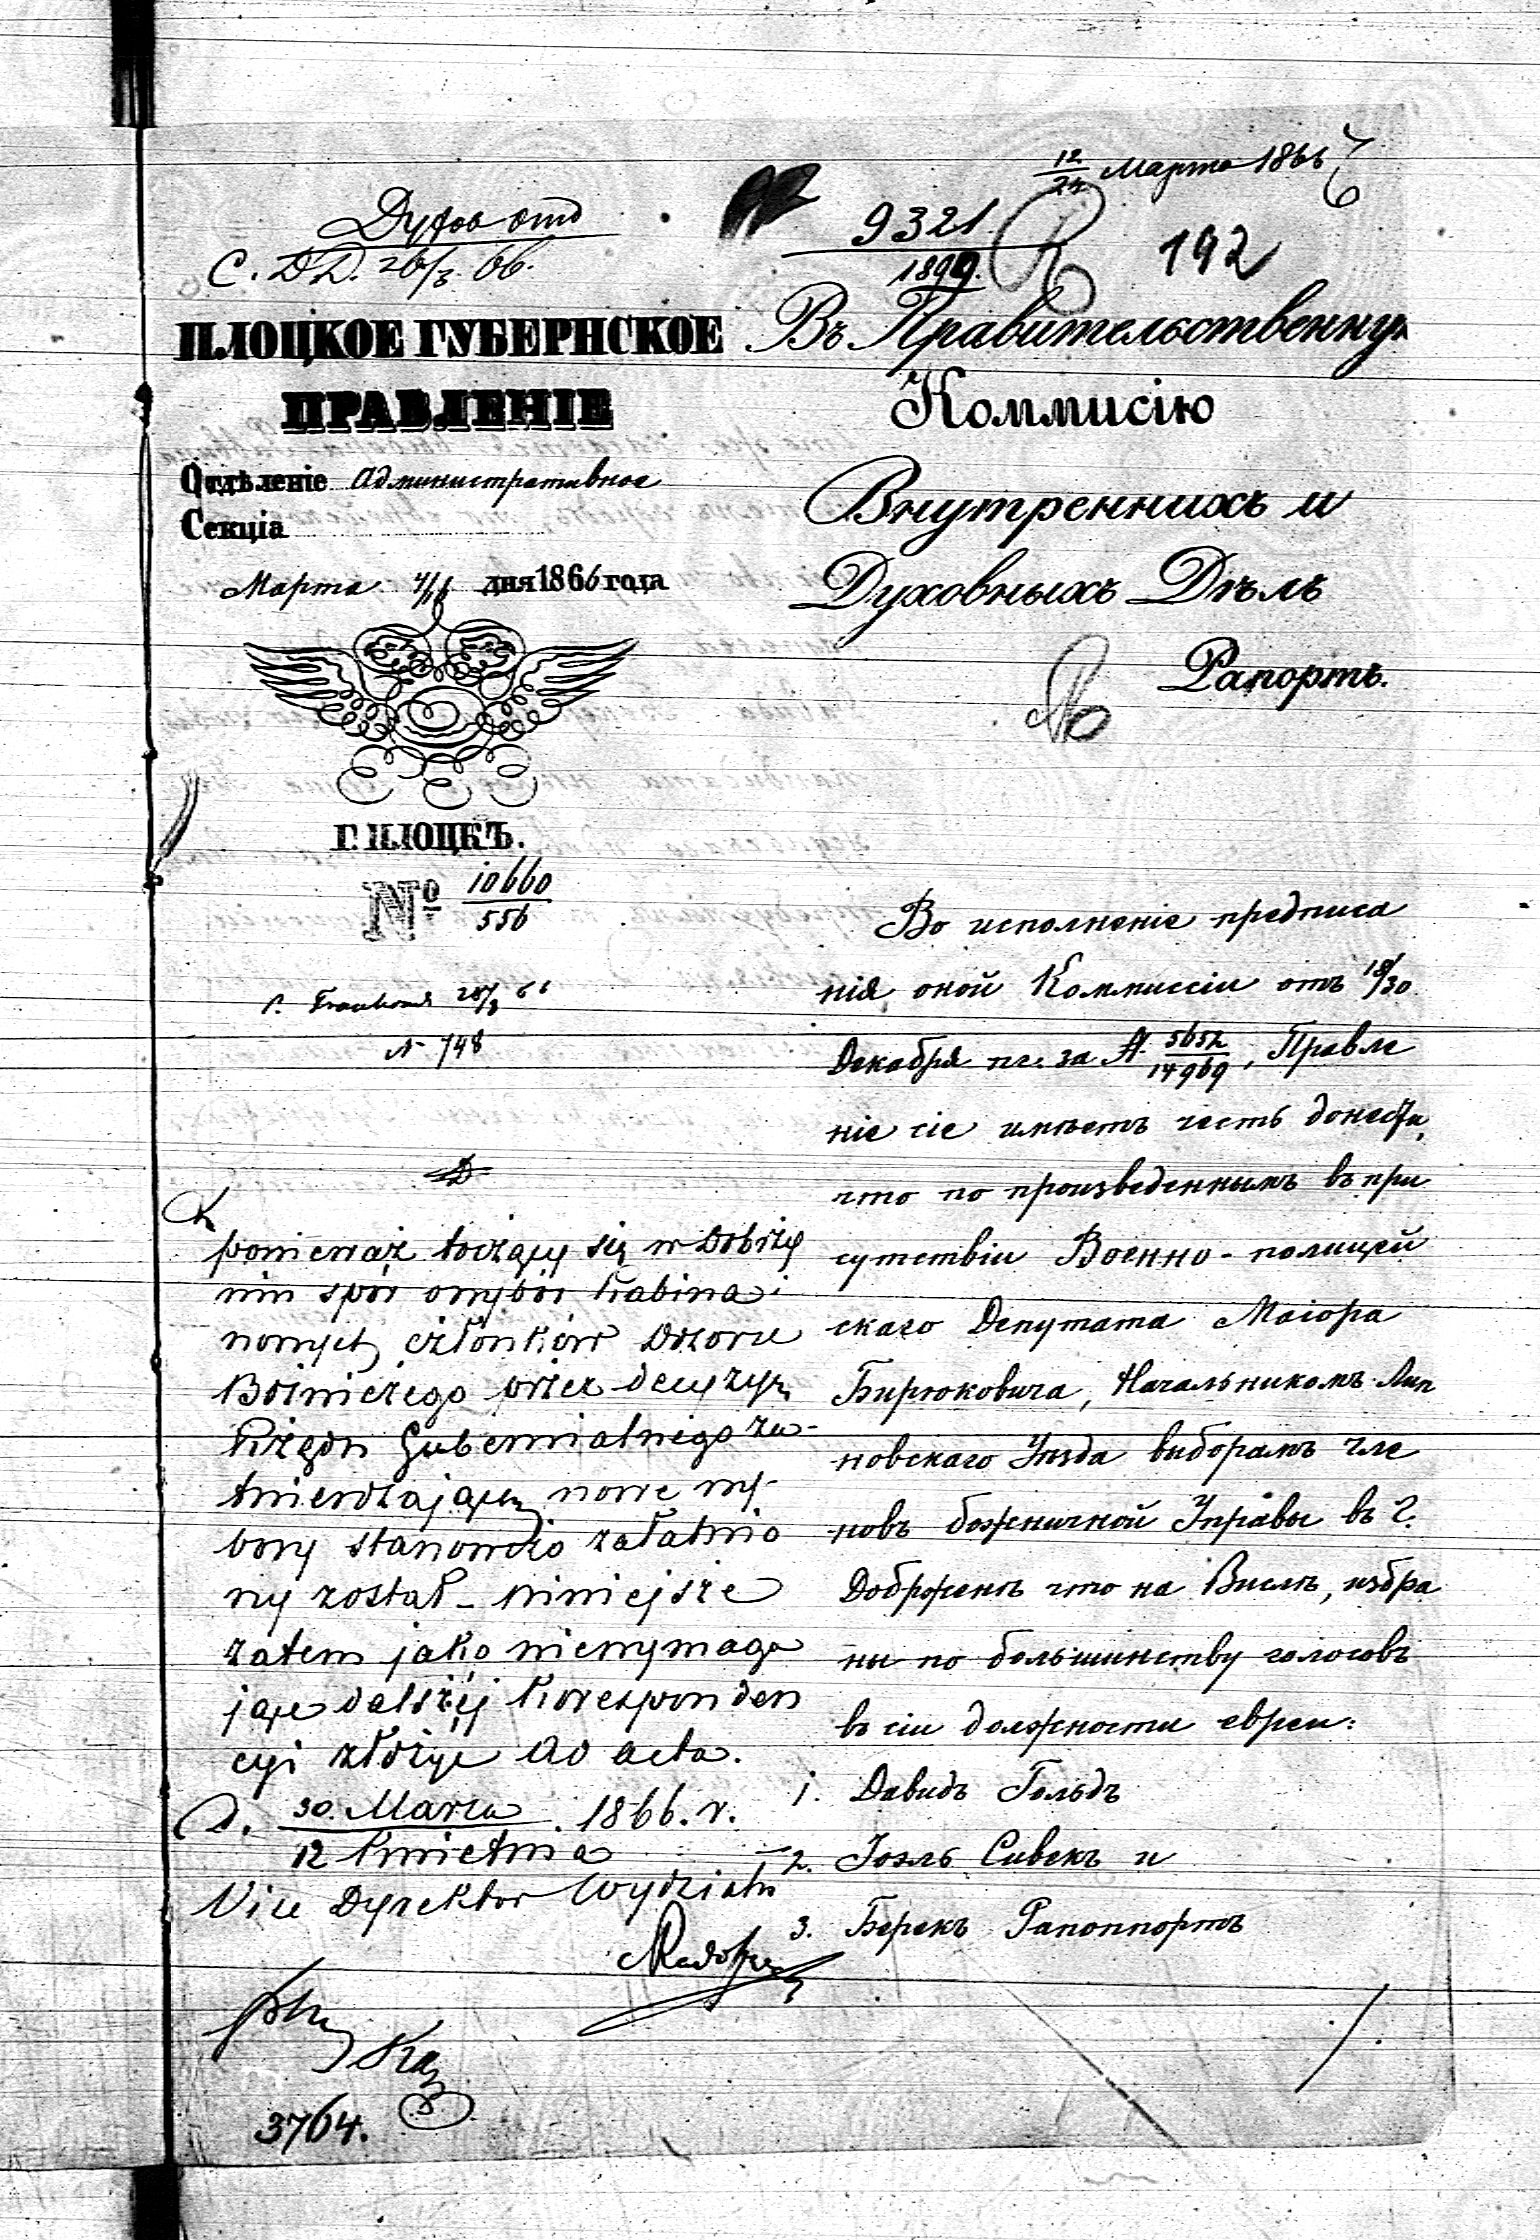 12/24 Марта 1866
Духов отд
С. Д.Д. 26/3 66.
9321
1899.
192
ПЛОЦКОЕ ГУБЕРНСКОЕ
ПРАВЛЕНІЕ
Отдѣленіе Административное
Секція
Марта 4/16 дня 1866 года
Г. ПЛОЦКЪ.
№ 10660
556
28/3 66
N 748
Въ Правительственную
Коммисію
Внутреннихъ и
Духовныхъ Дѣлъ
Рапортъ.
Во исполненіе предписа
нія оной Коммиссіи отъ 18/30
Декабря пг. за № 5652/14969, Правле
ніе сіе имѣетъ честь донести,
что по произведеннымъ въ при
сутствіи Военно-полицей
скаго Депутата Маіора
Бирюковича, Начальникомъ Лип
новскаго Уѣзда выборамъ чле
новъ божничной Управы въ г.
Добрженѣ что на Вислѣ, избра
ны по большинству голосовъ
въ сіи должности евреи:
1. Давидъ Гольдъ
2. Іоэль Сивекъ и
3. Берекъ Рапоппортъ
ponieważ toczący się w Dobrzy
niu spór o wybór Rabina i
nowych członków Dozoru
Bożniczego przez decyzyą
Rządu Gubernialnego za-
twierdzającą nowe wy-
bory stanowczo załatwio
ny został - niniejsze
zatem jako niewymaga
jące dalszéj korresponden
cyi złożyć ad acta.
D. 30. Marca / 12 Kwietnia 1866. r.
Vice Dyrektor Wydziału
3764.